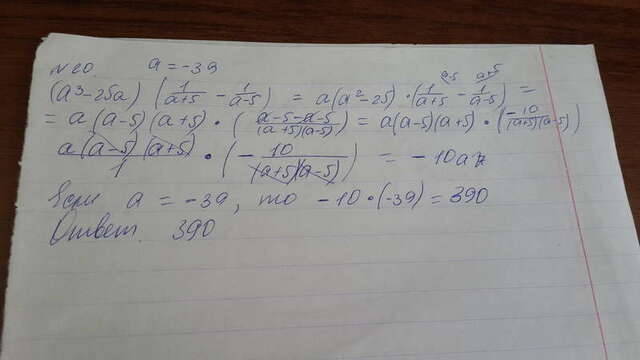 №20. a = -39
(a³-25a) (1/(a+5) - 1/(a-5)) = a(a²-25)·(a-5 1/(a+5) - a+5 1/(a-5)) =
= a(a-5)(a+5)·((a-5-a-5)/((a+5)(a-5))) = a(a-5)(a+5)·(-10/((a+5)(a-5)))
a(a-5)(a+5)/1 · (-10/((a+5)(a-5))) = -10a
Если a = -39, то -10·(-39) = 390
Ответ. 390